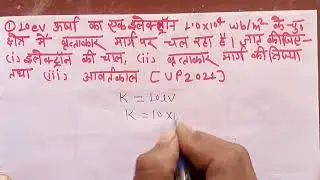 ① 10eV ऊर्जा का एक इलेक्ट्रॉन 1.0×10⁴ wb/m² के चु
क्षेत्र में वृत्ताकार मार्ग पर चल रहा है। ज्ञात कीजिए-
(i) इलेक्ट्रॉन की चाल, (ii) वृत्ताकार मार्ग की त्रिज्या
तथा (iii) आवर्तकाल [UP 2021]
K = 10eV
K = 10×1